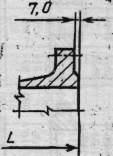 7,0
L